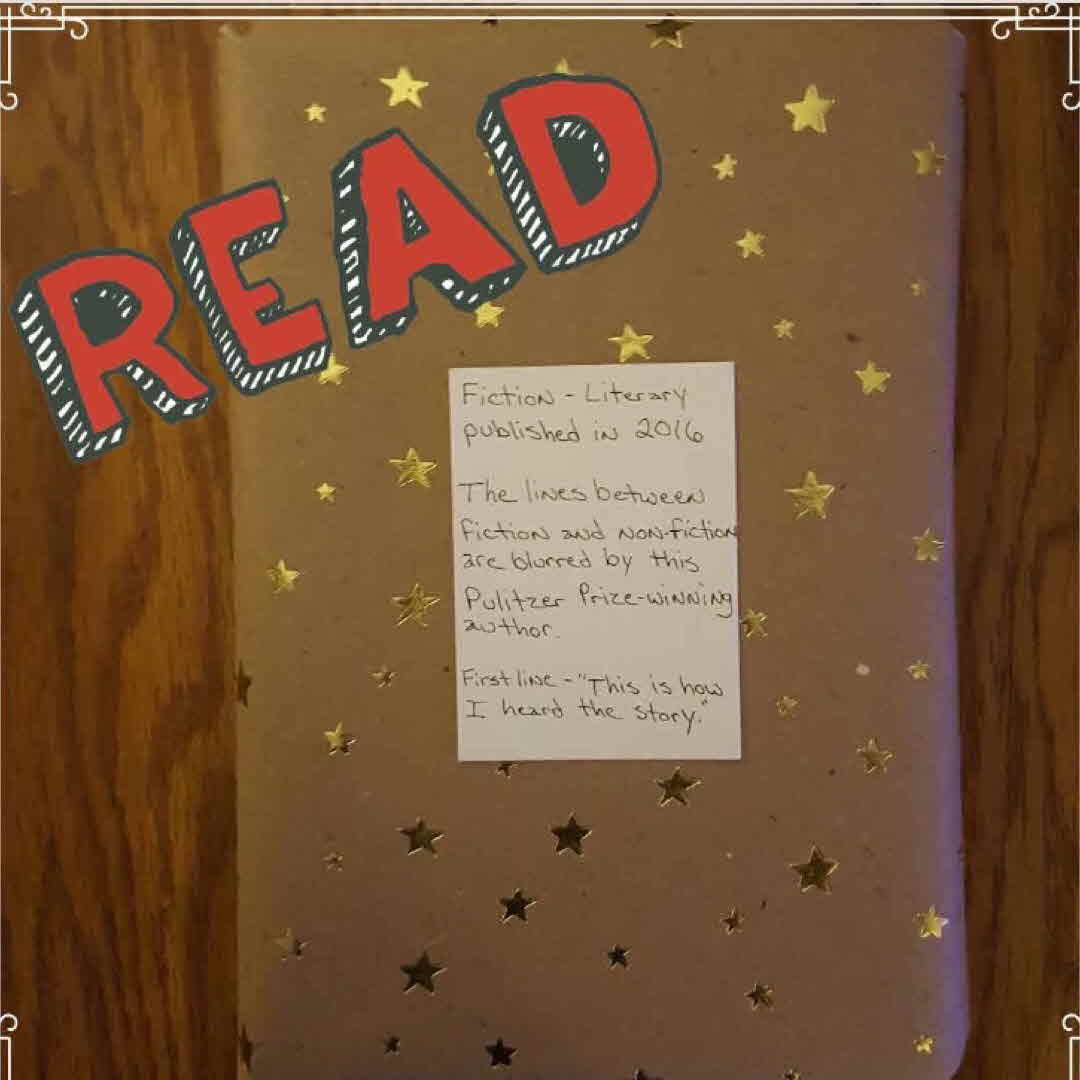 READ
Fiction - Literary
published in 2016
The lines between
fiction and non-fiction
are blurred by this
Pulitzer Prize-winning
author.
First line - "This is how
I heard the story."